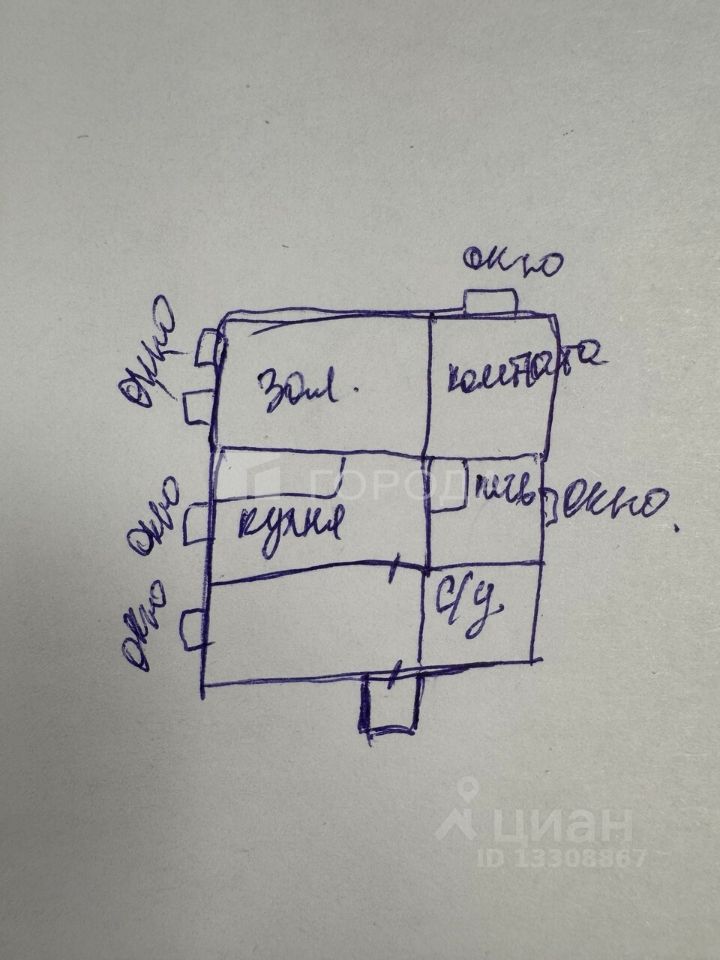 окно
окно
зал.
комната
окно
ГОРОД
кухня
печь
окно.
окно
с/у
циан
ID 13308867